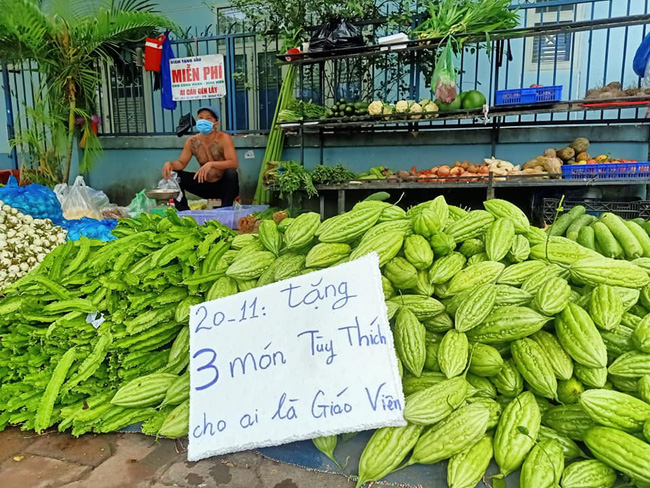 MIỄN PHÍ
AI CẦN ĐẾN LẤY
20-11: Tặng
3 món Tùy Thích
cho ai là Giáo Viên